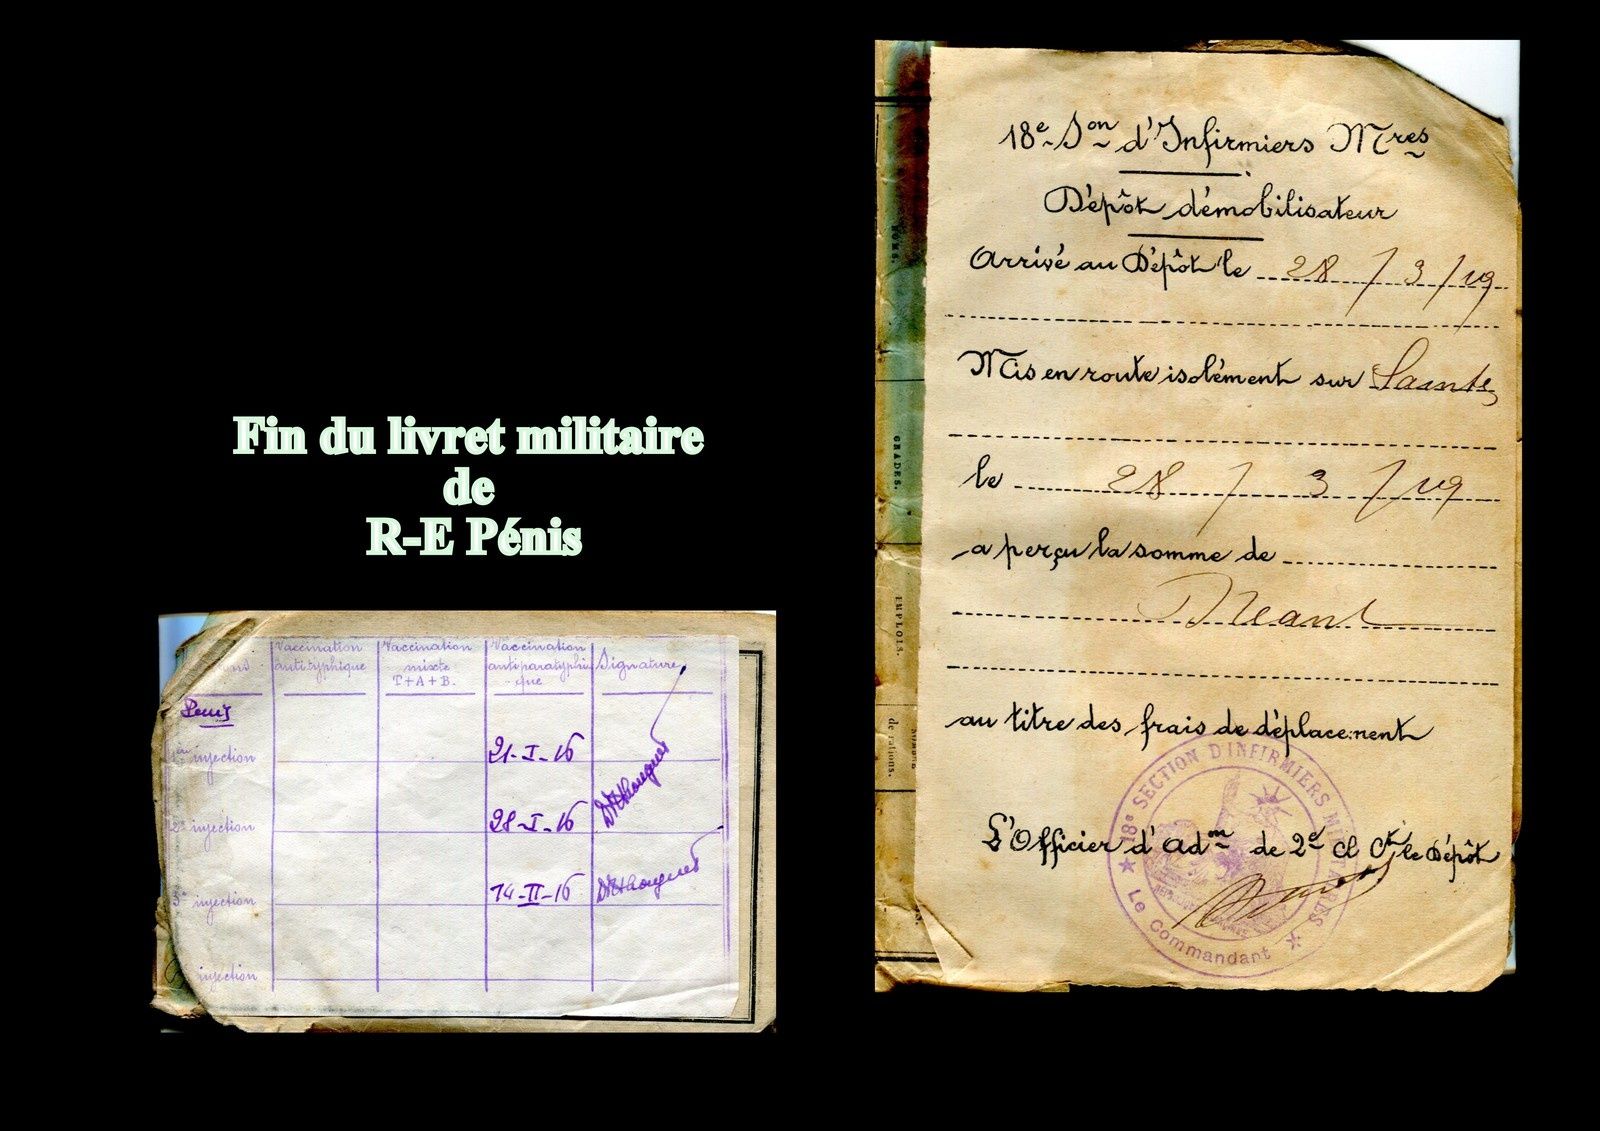 Fin du livret militaire
de
R-E Pénis
Vaccination antityphique
Vaccination mixte T+A+B.
Vaccination antiparatyphi-que
Signature
Penis
injection
21-I-16
2e injection
28-I-16
3e injection
14-II-16
injection
18e Son d'Infirmiers Mres
Dépôt démobilisateur
Arrivé au Dépôt le 28/3/19
Mis en route isolément sur Saintes
le 28/3/19
a perçu la somme de
Néant
au titre des frais de déplacement
L'Officier d'adm de 2e cl Ct le Dépôt
18e SECTION D'INFIRMIERS MILITAIRES
Le Commandant
NOMS.
GRADES.
EMPLOIS.
NOMBRE de rations.